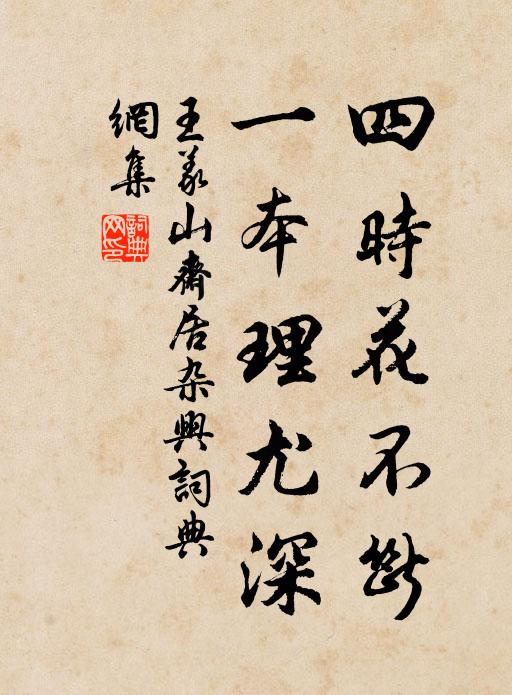 四時花不斷
一本理尤深
王義山齋居杂興詞典
網集
詞典網印